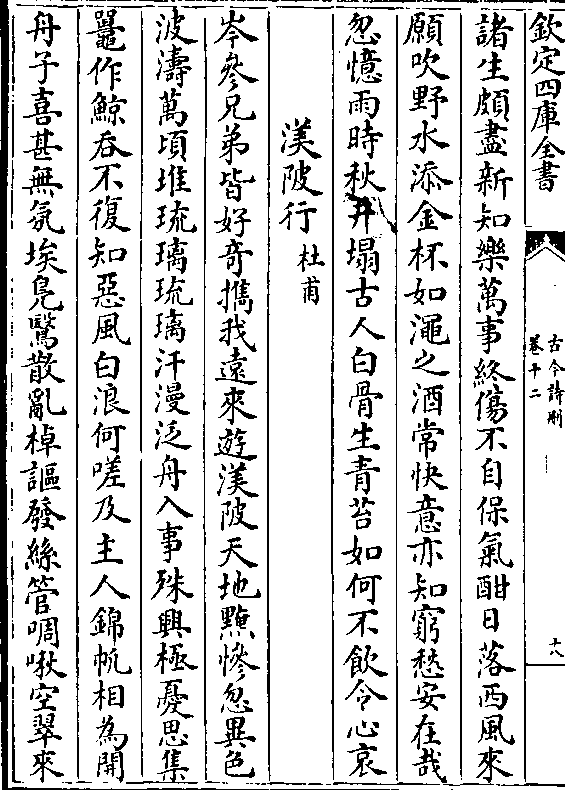 欽定四庫全書
古今詩刪
卷十二
十八
諸生頗盡新知樂萬事終傷不自保氣酣日落西風來
願吹野水添金杯如澠之酒常快意亦知窮愁安在哉
忽憶雨時秋井塌古人白骨生青苔如何不飲令心哀
渼陂行
杜甫
岑參兄弟皆好奇攜我遠來遊渼陂天地黤慘忽異色
波濤萬頃堆琉璃琉璃汗漫泛舟入事殊興極憂思集
鼉作鯨吞不復知惡風白浪何嗟及主人錦帆相為開
舟子喜甚無氛埃鳧鷖散亂棹謳發絲管啁啾空翠來